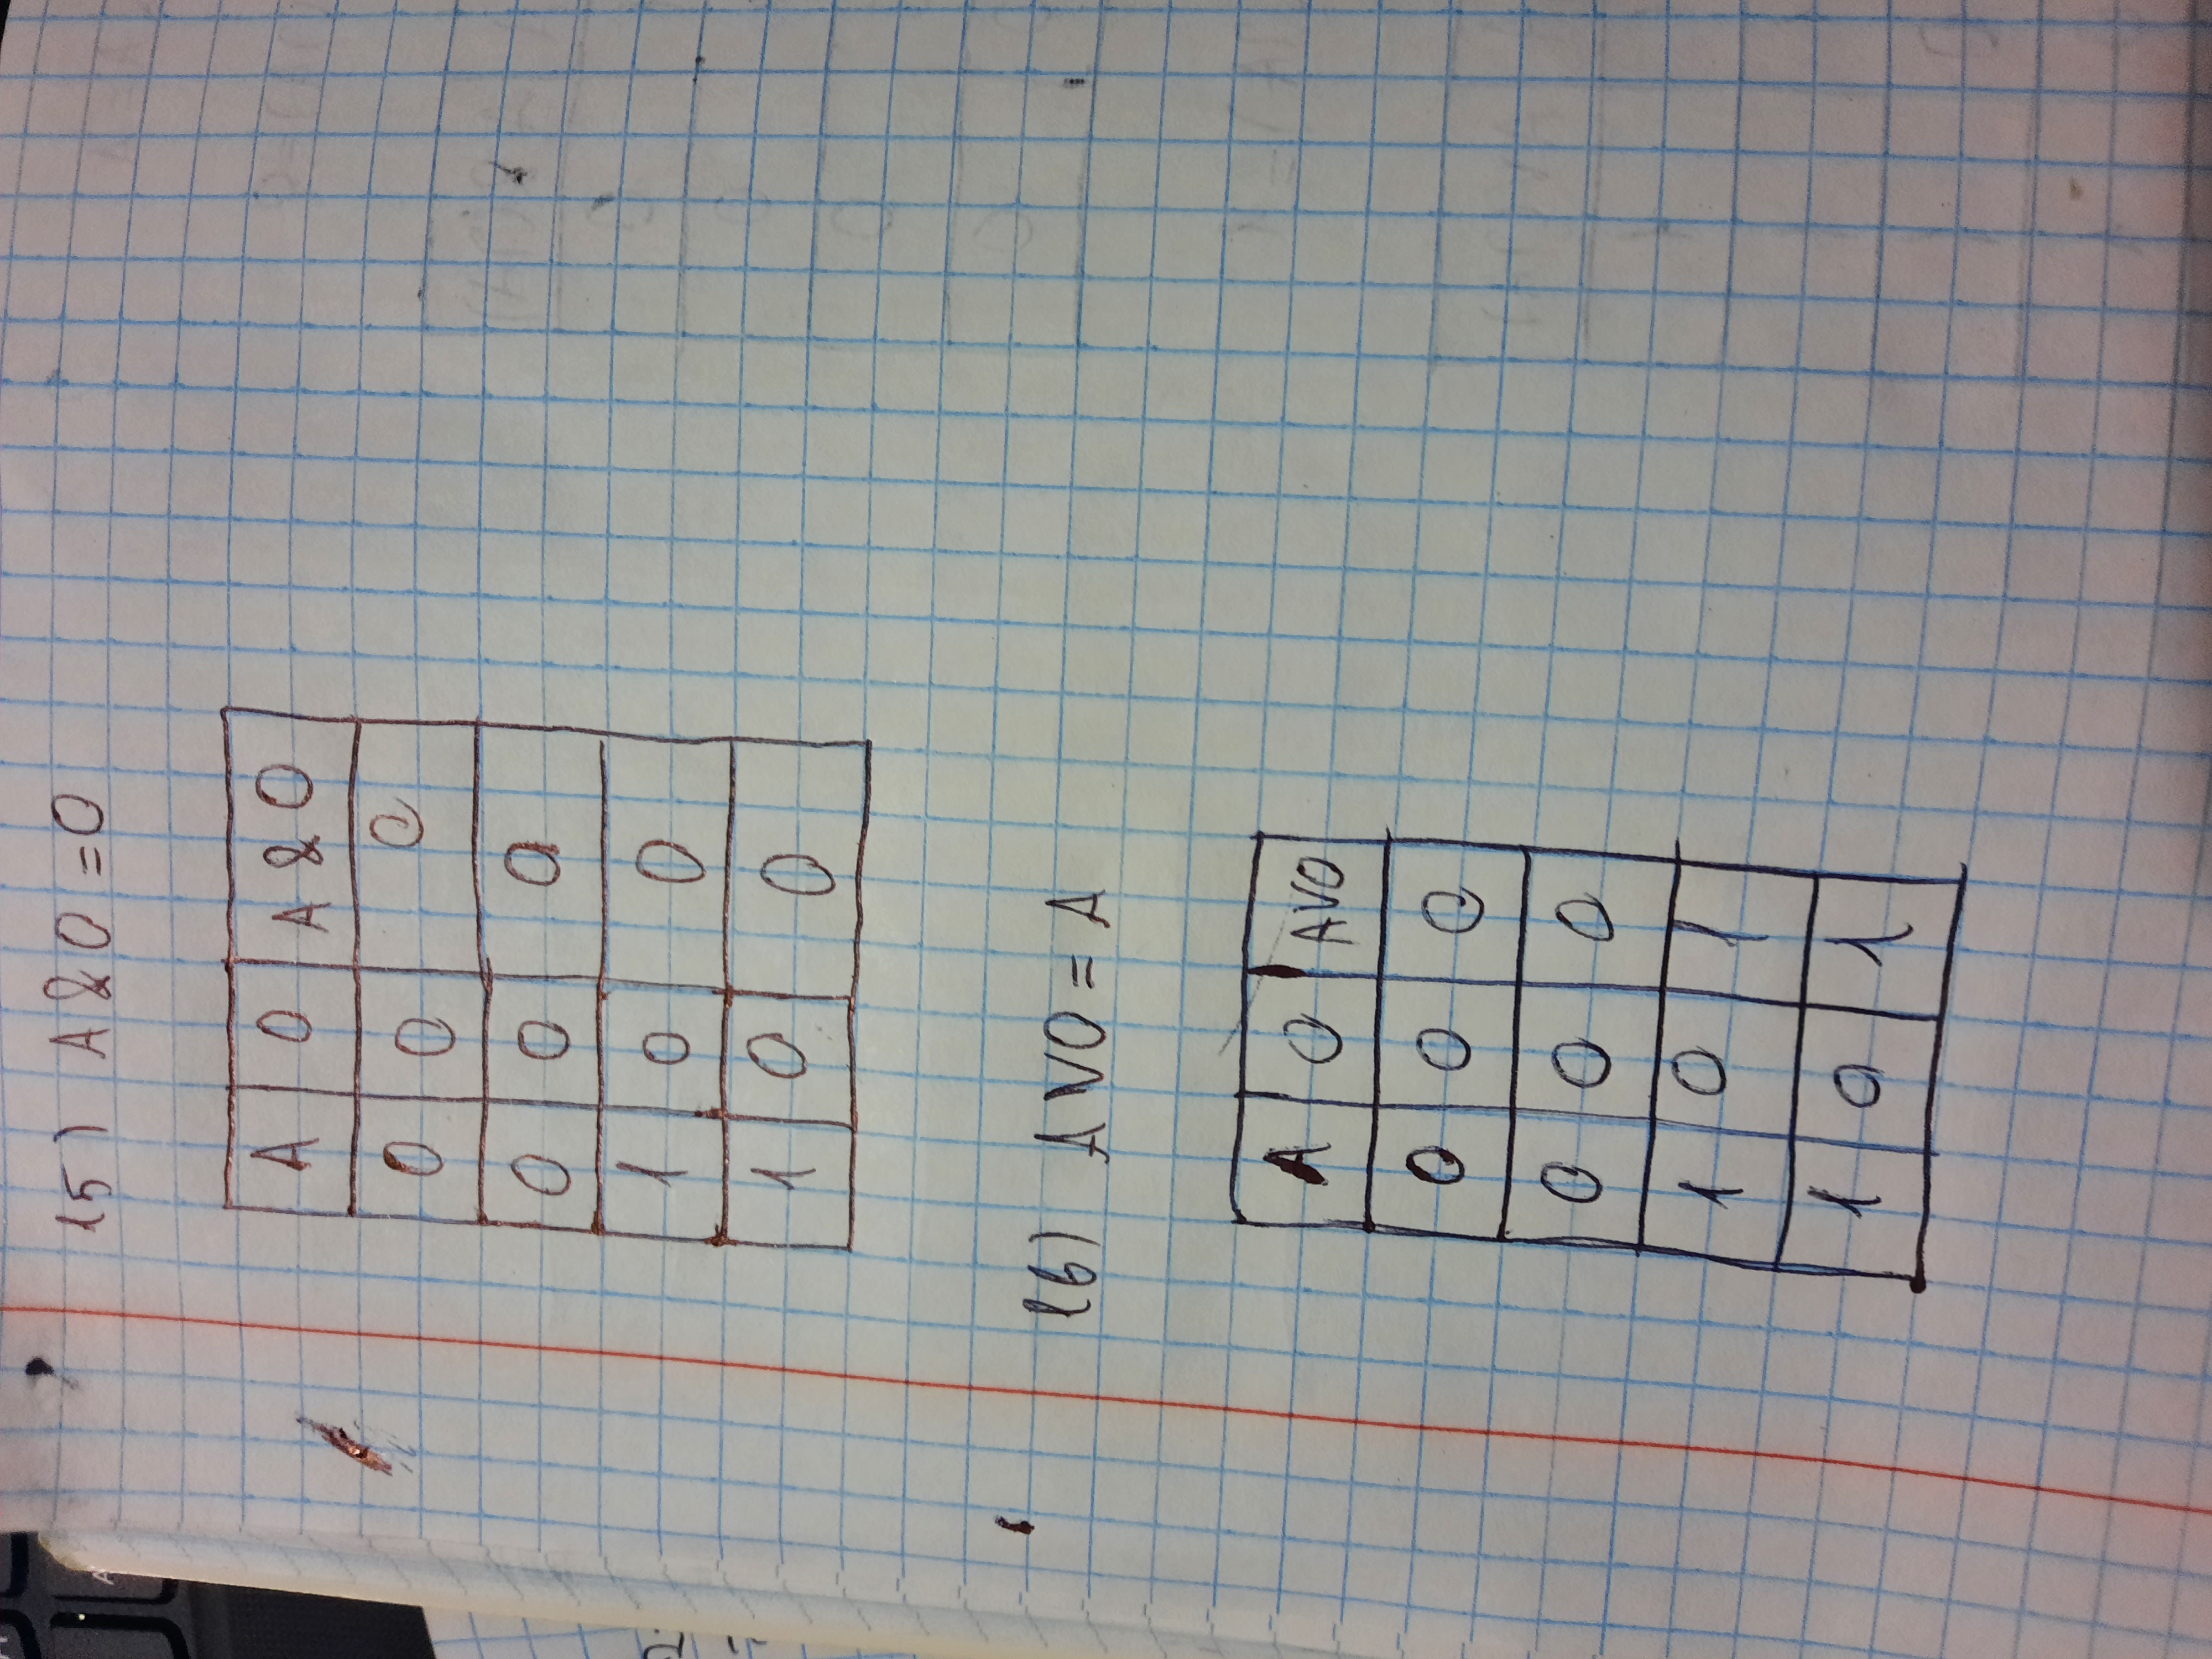 15) A & 0 = 0
A 0 A & 0
0 0 0
0 0 0
1 0 0
1 0 0
16) A V 0 = A
A 0 AV0
0 0 0
0 0 0
1 0 1
1 0 1